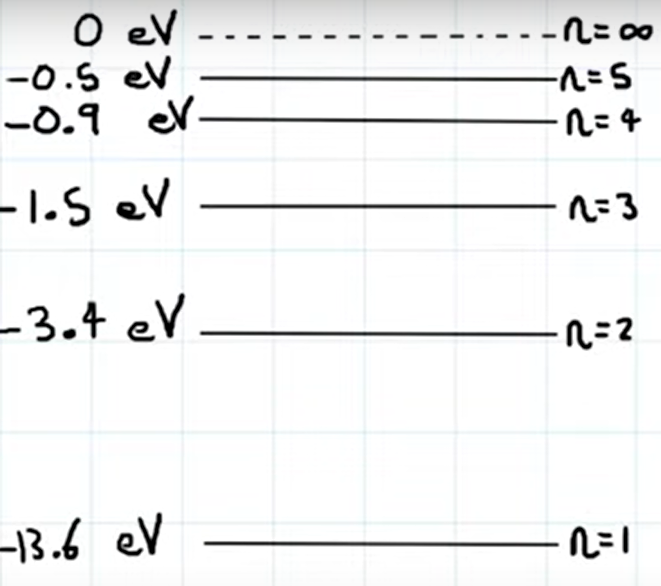 0 eV n=∞
-0.5 eV n=5
-0.9 eV n=4
-1.5 eV n=3
-3.4 eV n=2
-13.6 eV n=1